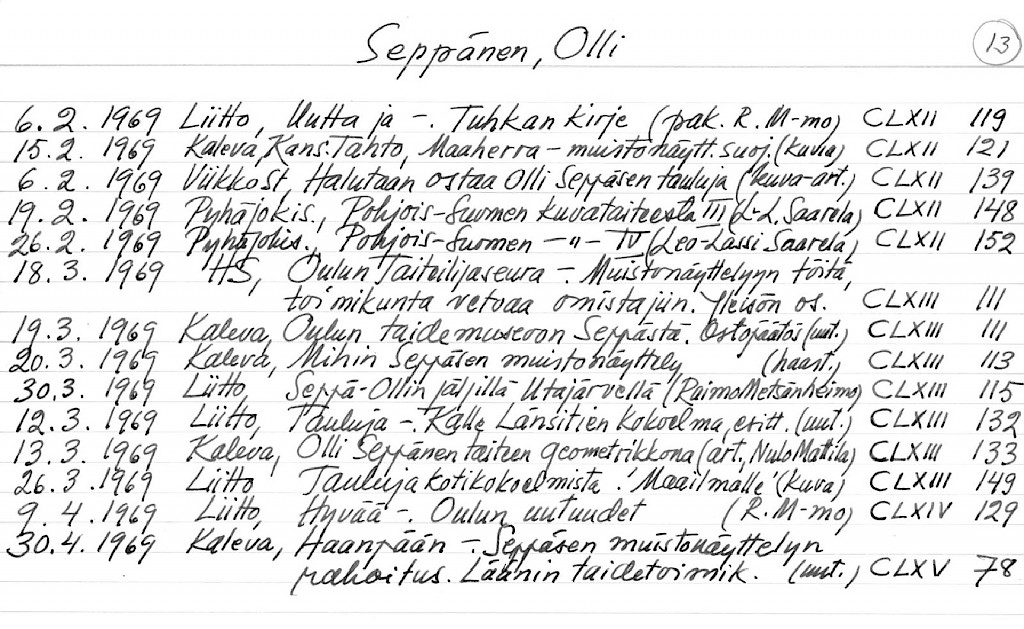 Seppänen, Olli 13
6.2.1969 Liitto, Uutta ja -. Tuhkan kirje (pak. R. M-mo) CLXII 119
15.2.1969 Kaleva, Kans.Tahto, Maaherra - muistonäytt.suoj.(kuvia) CLXII 121
6.2.1969 ViikkoSt, Halutaan ostaa Olli Seppäsen tauluja (kuva-art.) CLXII 139
19.2.1969 Pyhäjokis., Pohjois-Suomen kuvataiteesta III (L-L. Saarela) CLXII 148
26.2.1969 Pyhäjokis., Pohjois-Suomen -"- IV (Leo-Lassi Saarela) CLXII 152
18.3.1969 HS, Oulun Taiteilijaseura -. Muistonäyttelyyn töitä,
toimikunta vetoaa omistajiin. Yleisön os. CLXIII 111
19.3.1969 Kaleva, Oulun taidemuseoon Seppästä. Ostopäätös (uut.) CLXIII 111
20.3.1969 Kaleva, Mihin Seppäsen muistonäyttely (haast.) CLXIII 113
30.3.1969 Liitto, Seppä-Ollin jäljillä Utajärvellä (Raimo Metsänheimo) CLXIII 115
12.3.1969 Liitto, Tauluja -. Kalle Länsitien kokoelma, esitt. (uut.) CLXIII 132
13.3.1969 Kaleva, Olli Seppänen taiteen geometrikkona (art., Niilo Mattila) CLXIII 133
26.3.1969 Liitto Tauluja kotikokoelmista 'Maailmalle' (kuva) CLXIII 149
9.4.1969 Liitto, Hyvää -. Oulun uutuudet (R.M-mo) CLXIV 129
30.4.1969 Kaleva, Haanpään -. Seppäsen muistonäyttelyn
rahoitus. Läänin taidetoimik. (uut.) CLXV 78